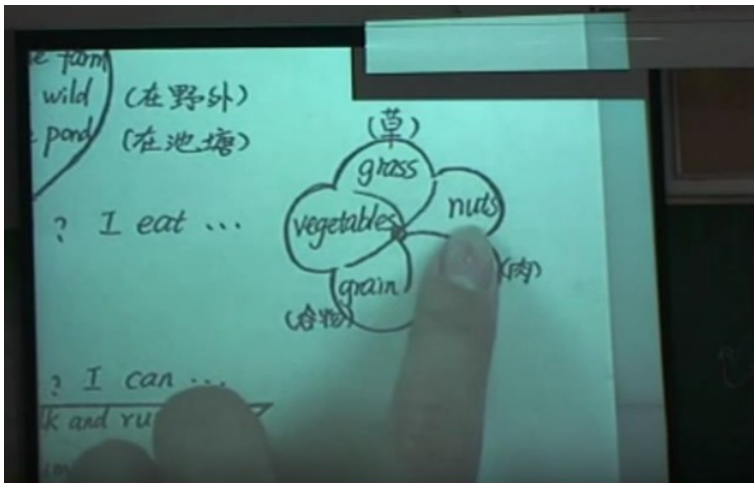 farm
wild (在野外)
pond (在池塘)
(草)
grass
nuts
vegetables
? I eat ...
(肉)
grain
(谷物)
? I can ...
and ru